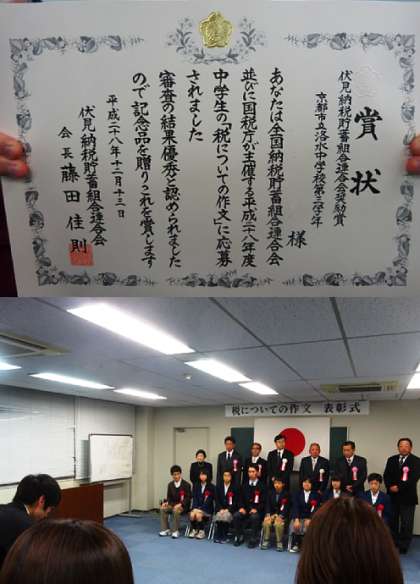 賞状
伏見納税貯蓄組合連合会奨励賞
京都市立洛水中学校第三学年
様
あなたは全国納税貯蓄組合連合会
並びに国税庁が主催する平成二十八年度
中学生の「税についての作文」に応募
されました
審査の結果優秀と認められました
ので記念品を贈りこれを賞します
平成二十八年十二月十三日
伏見納税貯蓄組合連合会
会長 藤田佳則
税についての作文 表彰式